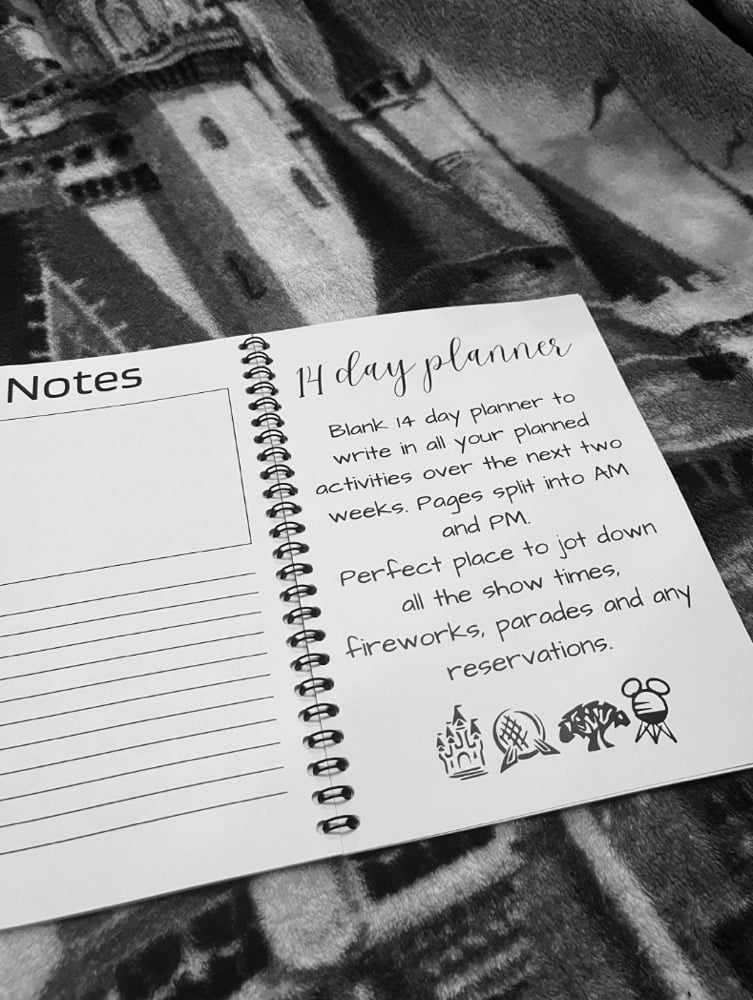 Notes
14 day planner
Blank 14 day planner to
write in all your planned
activities over the next two
weeks. Pages split into AM
and PM.
Perfect place to jot down
all the show times,
fireworks, parades and any
reservations.